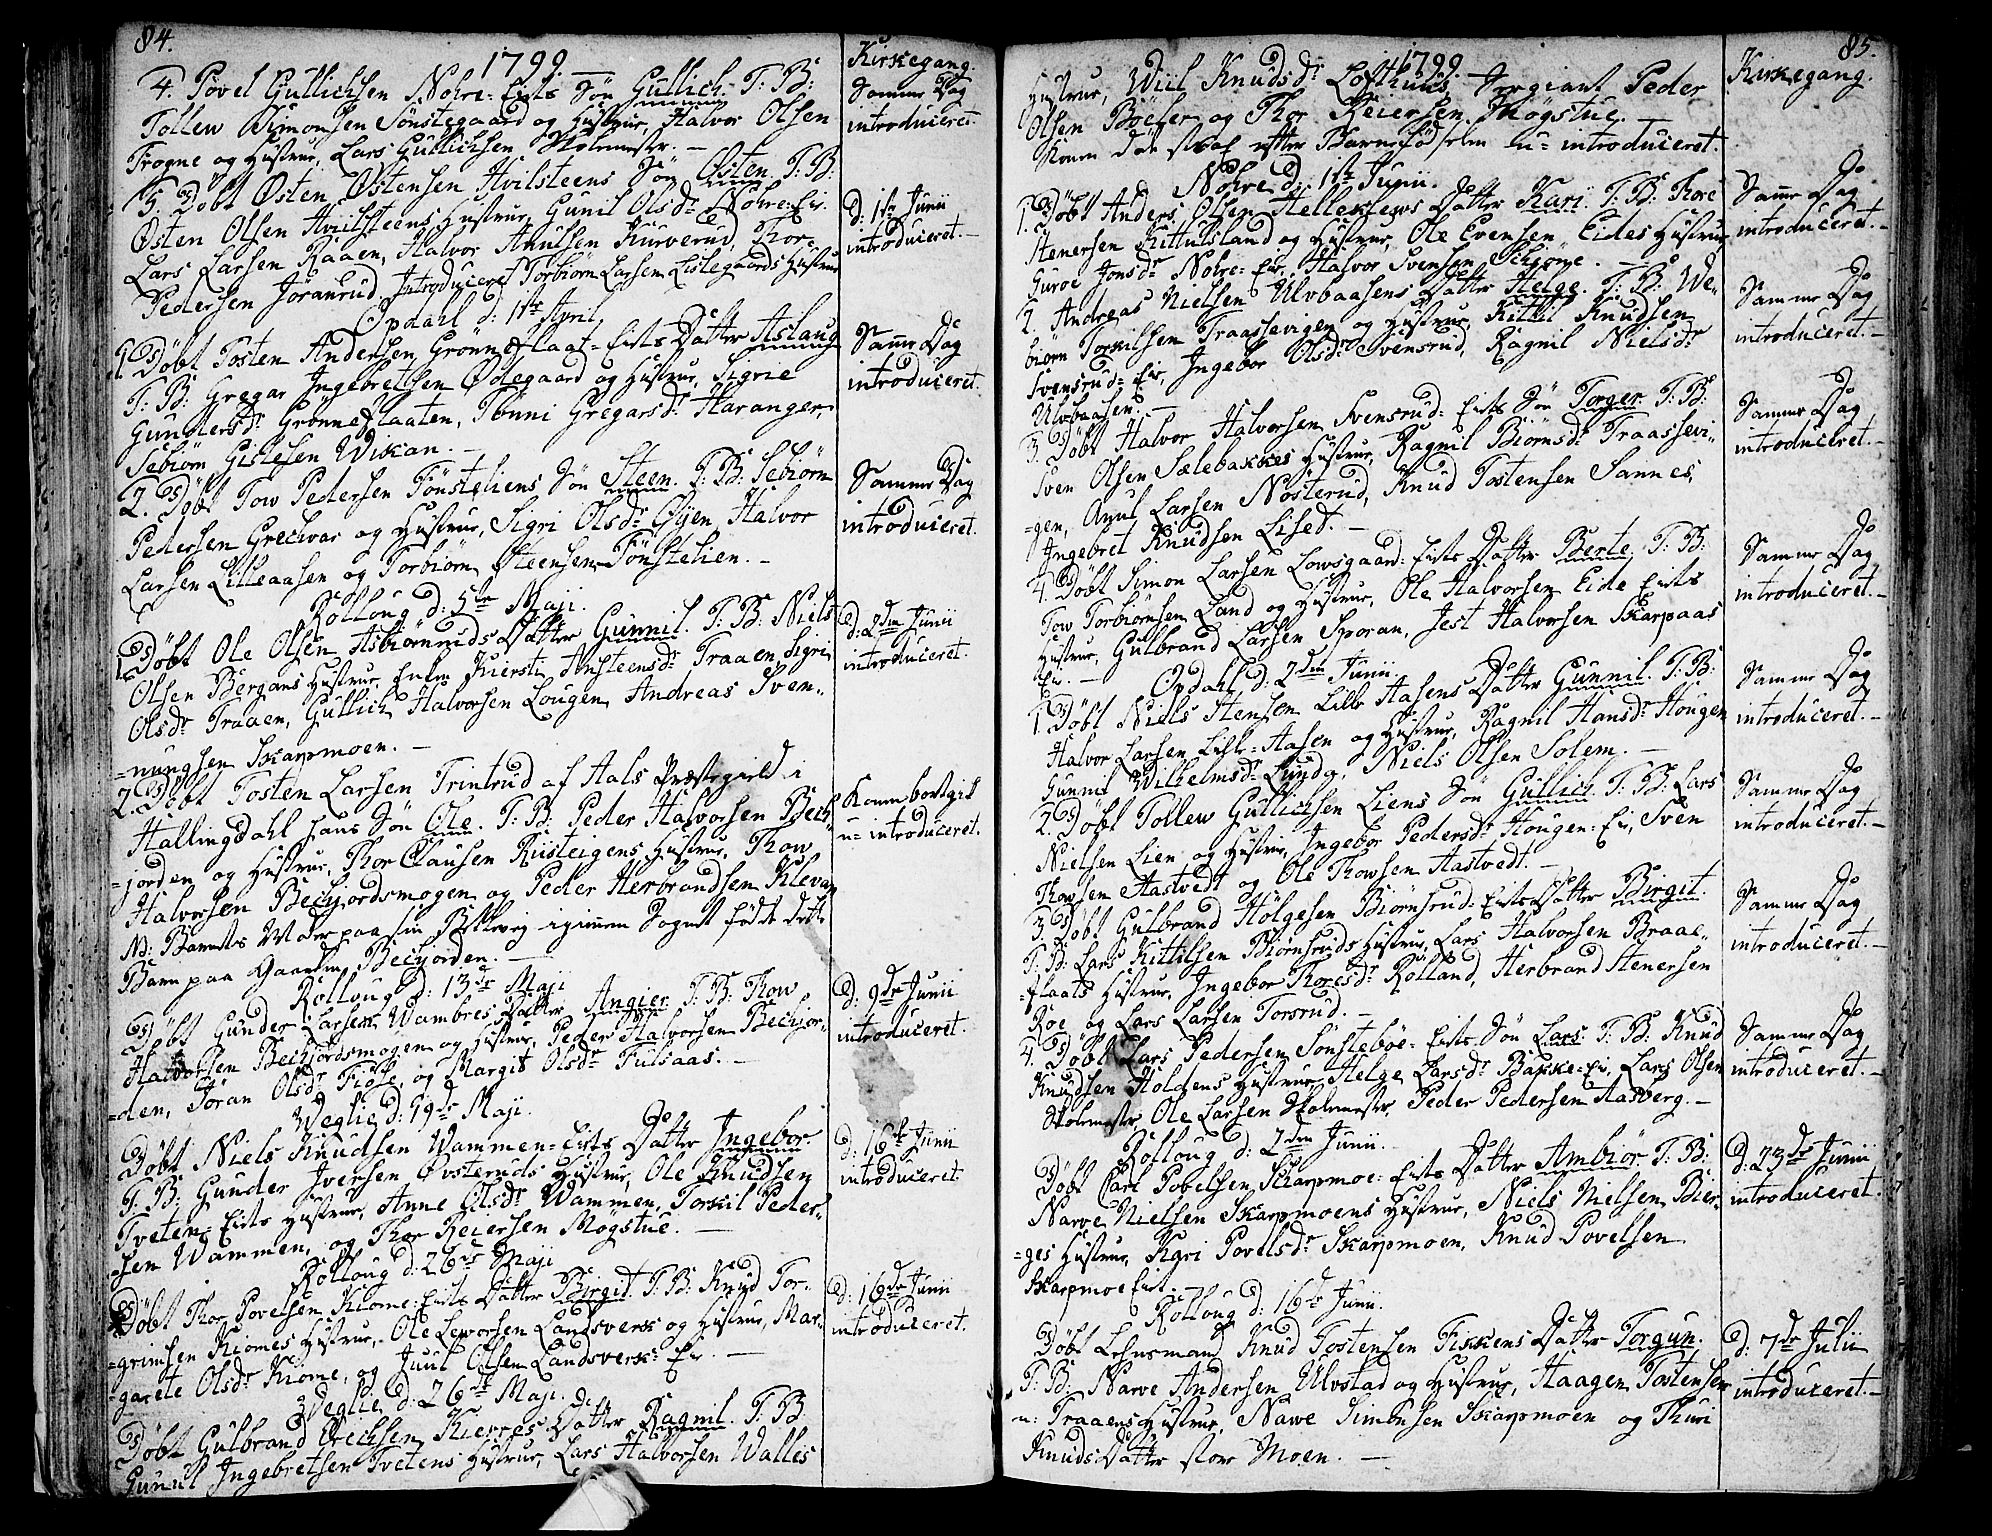 84.
1799
Kirkegang.
4. Povel Gullichsen Nohre-Eiets Søn Gullich. T: B:
Tollew Simonsen Sønstegaard og Hustrue, Halvor Olsen
Trogne og Hustrue, Lars Gullichsen Skolemestr. –
Samme Dag
introduceret.
5. Døbt Østen Østensen Hvilsteens Søn Østen. T: B:
Østen Olsen Hvilsteens Hustrue, Gunil Olsdr. Nohre-Eie,
Lars Larsen Raaen, Halvor Knutsen Kurverud, Thor
Pedersen Jøranrud. Introduceret Torbiørn Larsen Lislegaards Hustrue
d: 1ste Junii
introduceret. –
Opdahl d: 1ste April.
1. Døbt Tosten Andersen Grønneflaat-Eiets Datter Aslaug
T: B: Gregar Ingebretsen Ødegaard og Hustrue, Sigrie
Gundersdr. Grønneflaaten, Tønni Gregarsdr. Haranger,
Sebiørn Gislesen Wikan. –
Samme Dag
introduceret.
2. Døbt Tow Pedersen Tønsteliens Søn Steen. T: B: Sebiørn
Pedersen Grechvar og Hustrue, Sigri Olsdr. Øyen, Halvor
Larsen Lilleaasen og Torbiørn Steensen Tønstelien. –
Samme Dag
introduceret.
Rolloug d: 5te Maji.
1. Døbt Ole Olsen Asbiørnruds Datter Gunnil. T: B: Niels
Olsen Bergans Hustrue, Enken Kiersti Ansteensdr. Traaen, Sigri
Olsdr. Traaen, Gullich Halvorsen Lougen, Andreas Sven-
=nungsen Skarpmoen. –
d: 2den Junii
introduceret.
2. Døbt Tosten Larsen Trintrud af Aals Præstegield i
Hallingdahl hans Søn Ole. T: B: Peder Halvorsen Bech-
=jorden og Hustrue, Thor Clausen Riisteigens Hustrue, Thow
Halvorsen Bechjordsmogen og Peder Herbrandsen Klevan
NB: Barnets Moder paa sin Reise igiennem Sognet fødte dette
Barn paa Gaarden Bechjorden. –
Konen bortgik
u-introduceret.
Rolloug d: 13de Maji
Døbt Gunder Larsen Wambres Datter Angier. T: B: Thow
Halvorsen Bechjordsmogen og Hustrue, Peder Halvorsen Bechjor-
=den, Jøran Olsdr. Fiøse, og Margit Olsdr. Fulsaas. –
d: 9de Junii
introduceret.
Weglie d: 19de Maji.
Døbt Niels Knudsen Wammen-Eiets Datter Ingebor.
T: B: Gunder Iversen Øvsteruds Hustrue, Ole Knudsen
Tveten-Eiets Hustrue, Anne Olsdr. Wammen, Torkil Peder-
sen Wammen, og Thor Reiersen Møgstue. –
d: 16de Junii
introduceret
Rolloug d: 26de Maji
Døbt Thor Povelsen Kiome-Eiets Datter Birgit. T: B: Knud Tor-
=grimsen Kiomes Hustrue, Ole Leworsen Landsverk og Hustrue, Mar-
=garete Olsdr. Kiome, og Juul Olsen Landsverk-Eie. –
d: 16de Junii
introduceret.
Weglie d: 26de Maji.
Døbt Gulbrand Erechsen Kierres Datter Ragnil. T: B:
Gunul Ingebretsen Tvetens Hustrue, Lars Halvorsen Walles
85.
1799
Kirkegang.
Hustrue, Wiil Knudsdr. Lofthuus, Sergiant Peder
Olsen Bøefer og Thor Reiersen Møgstue. –
Konen døde strax efter Barnefødselen u-introduceret.
Nohre d: 1ste Junii.
1. Døbt Anders Olsen Hellekleevs Datter Kari. T: B: Thore
Stenersen Kittulsland og Hustrue, Ole Evensen Eides Hustrue
Guroe Jonsdr. Nohre-Eie, Halvor Svensen Schiøne. –
Samme Dag
introduceret. –
2. Andreas Nielsen Ulvbaasens Datter Helge. T: B: We-
biørn Torkilsen Traassevigen og Hustrue, Kittil Knudsen
Svensrud-Eie, Ingebor Olsdr. Svensrud, Ragnil Nielsdr.
Ulvbaasen. –
Samme Dag
introduceret. –
3. Døbt Halvor Halvorsen Svensrud-Eiets Søn Torger. T: B:
Sven Olsen Sælebakkes Hustrue, Ragnil Biørnsdr. Traassevi-
=gen, Anul Larsen Nøsterud, Knud Tostensen Sannes,
Ingebret Knudsen Liset. –
Samme Dag
introduceret. –
4. Døbt Simon Larsen Lowsgaard-Eiets Datter Berte. T: B:
Tow Torbiørnsen Land og Hustrue, Ole Halvorsen Eide Eiets
Hustrue, Gulbrand Larsen Sporan, Jest Halvorsen Skarpaas
Eie. –
Samme Dag
introduceret. –
Opdahl d: 2den Junii
1. Døbt Niels Stensen Lille Aasens Datter Gunnil. T: B:
Halvor Larsen Lisle-Aasen og Hustrue, Ragnil Hansdr. Hougen
Gunnil Wilhelmsdr. Lunde, Niels Olsen Solem. –
Samme Dag
introduceret. –
2. Døbt Tollew Gullichsen Liens Søn Gullich. T: B: Lars
Nielsen Lien og Hustrue, Ingebor Pedersdr. Hougen-Eie, Sven
Thowsen Aastvedt og Ole Thowsen Aastvedt. –
Samme Dag
introduceret. –
3. Døbt Gulbrand Hølgesen Biørnsrud-Eiets Datter Birgit.
T: B: Lars Kittilsen Biørnsruds Hustrue, Lars Halvorsen Braae-
=flaats Hustrue, Ingebor Thoresdr. Rolland, Herbrand Stenersen
Roe og Lars Larsen Torsrud. –
Samme Dag
introduceret. –
4. Døbt Lars Pedersen Sønstebøe-Eiets Søn Lars. T: B: Knud
Knudsen Holdens Hustrue, Helge Larsdr. Bakke-Eie, Lars Olsen
Skolemester, Ole Larsen Skolemester, Peder Pedersen Aasberg. –
Samme Dag
introduceret. –
Rolloug d: 2den Junii.
Døbt Carl Povelsen Skarpmoe-Eiets Datter Ambiør. T: B:
Narve Nielsen Skarpmoens Hustrue, Niels Nielsen Bier-
=ges Hustrue, Kgri Povelsdr. Skarpmoen, Knud Povelsen
Skarpmoe Eiet. –
d: 23de Junii
introduceret.
Rolloug d: 16de Junii.
Døbt Lehnsmand Knud Tostensen Fikkens Datter Torgun.
T: B: Narve Andersen Ulvstad og Hustrue, Haagen Tostensen
n: Traaens Hustrue, Narve Simensen Skarpmoen og Thuri
Knuds Datter store Moen. –
d: 7de Julii
introduceret. –